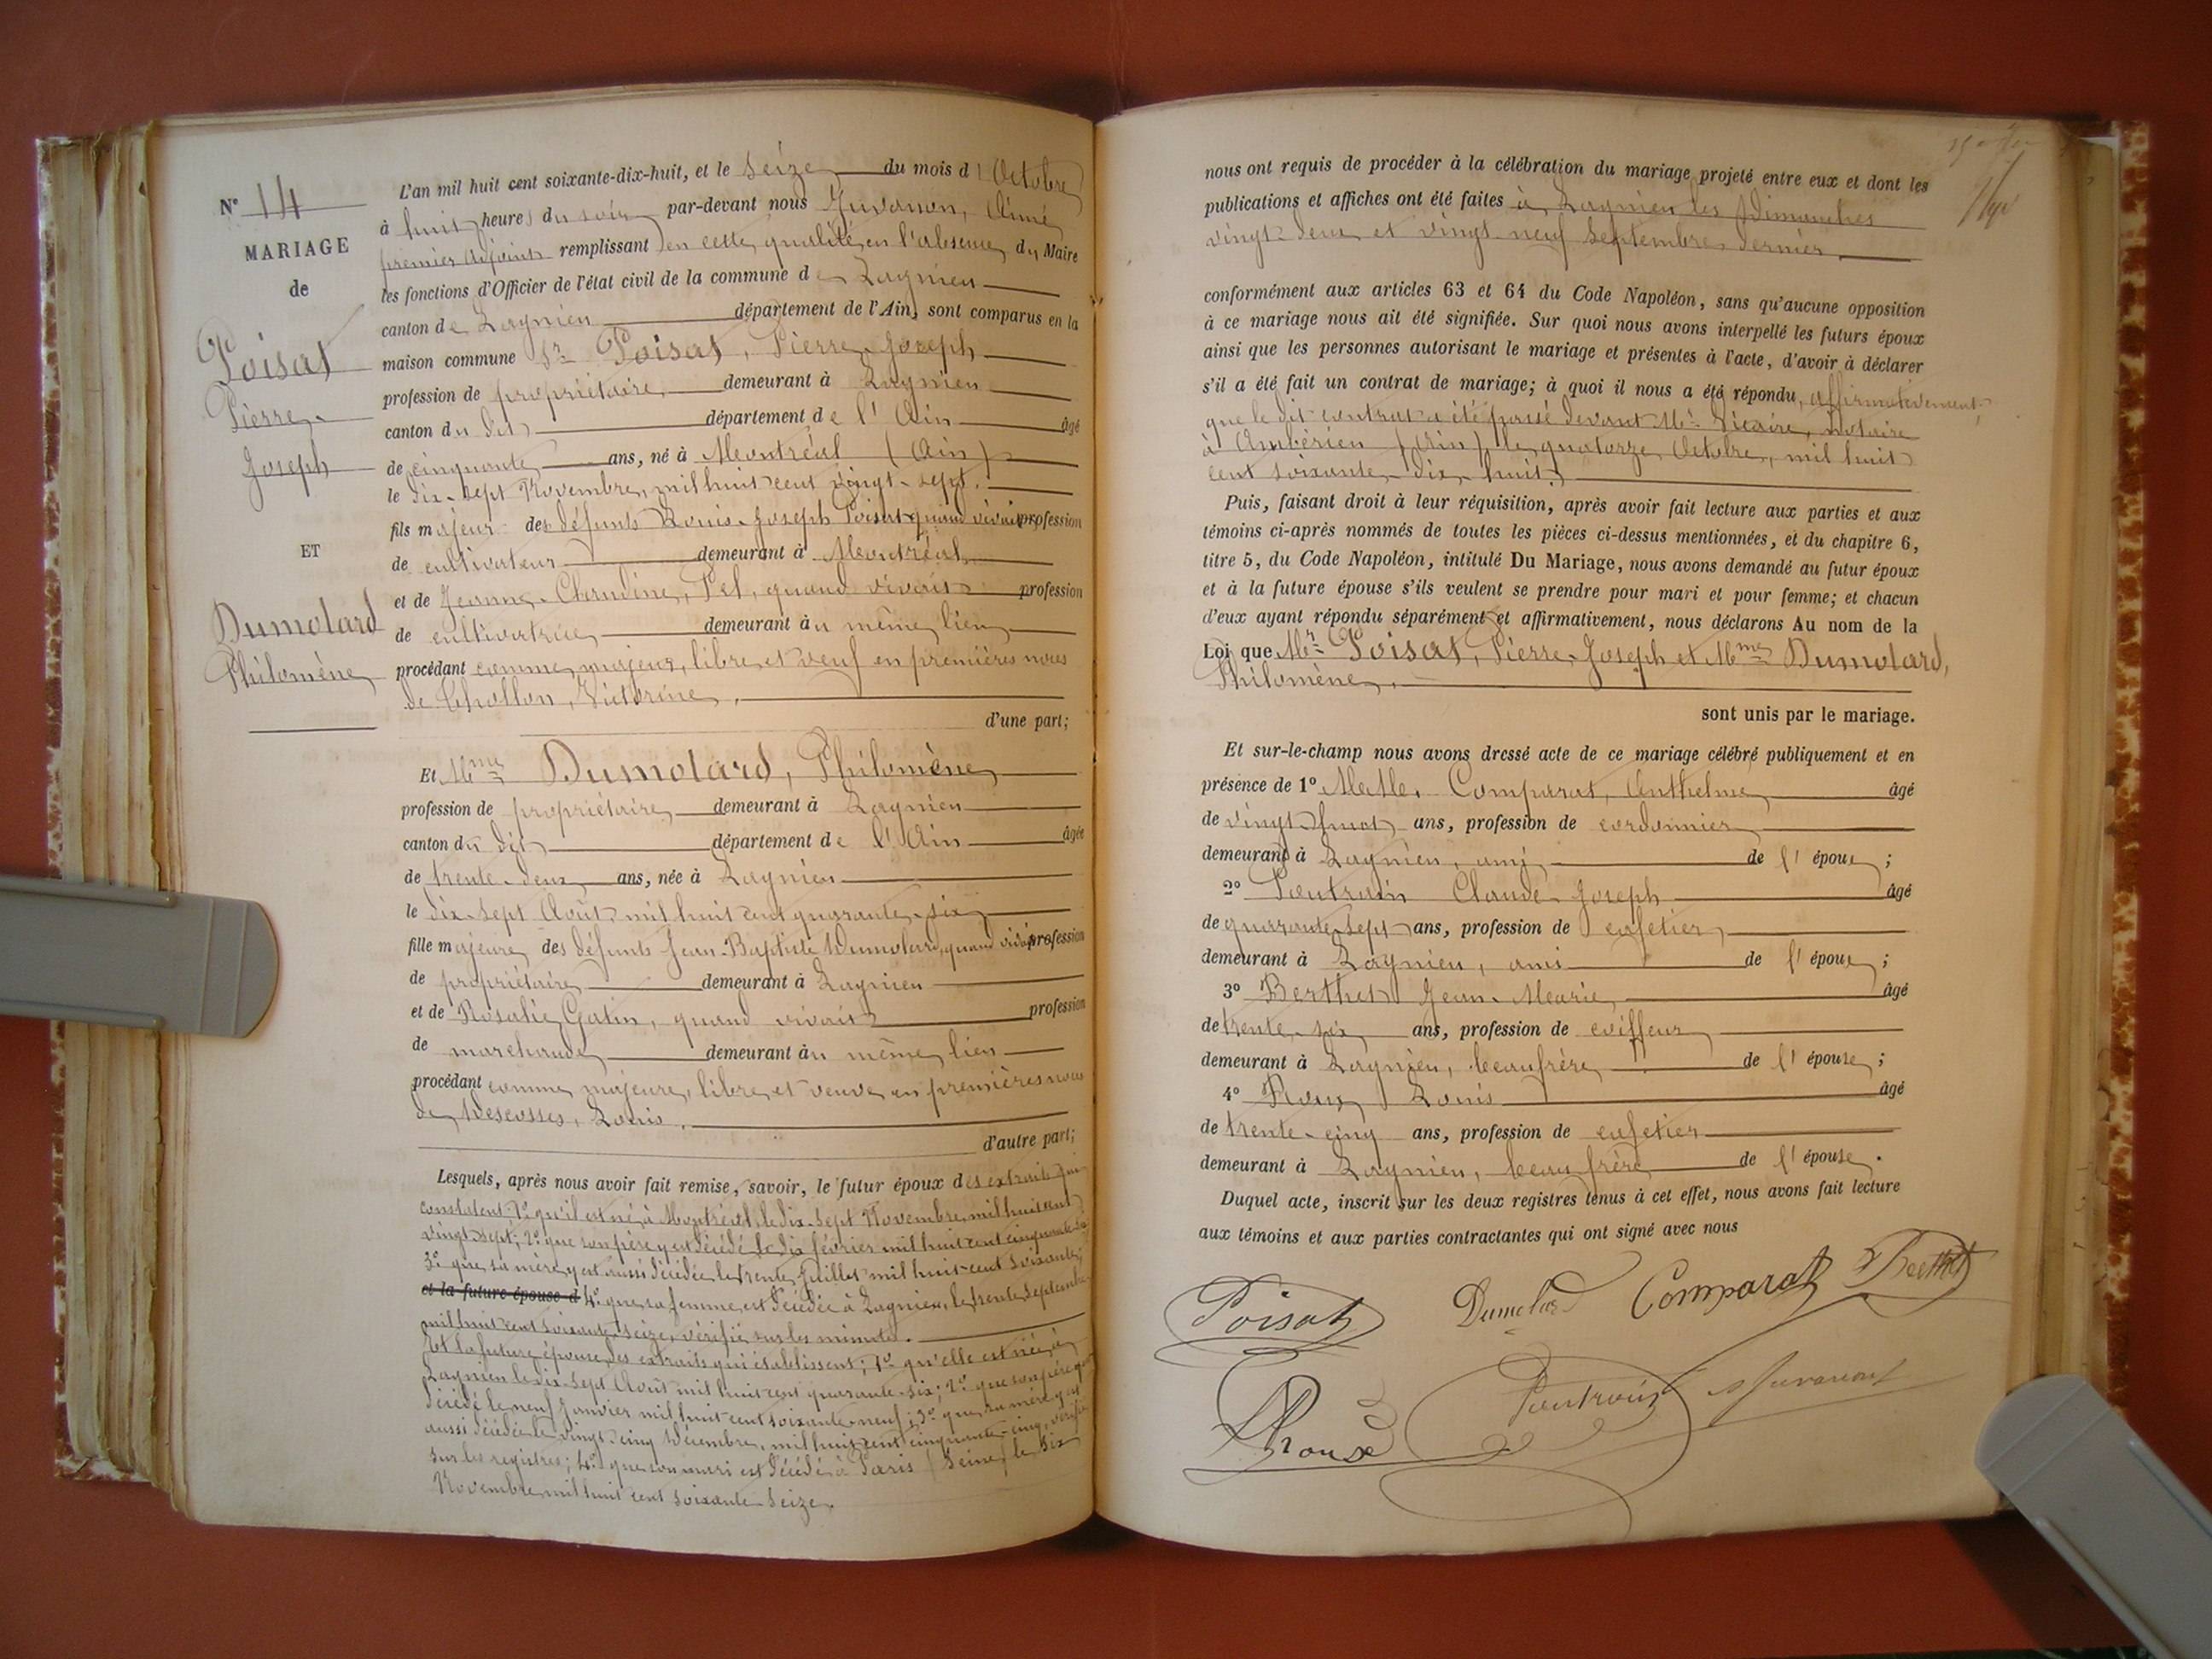 N° 14
MARIAGE
de
Poisat
Pierre
Joseph
ET
Dumolard
Philomène
L'an mil huit cent soixante-dix-huit, et le seize du mois d'Octobre
à huit heures du soir par-devant nous Juvanon, Aimé
premier adjoint remplissant en cette qualité en l'absence du Maire
les fonctions d'Officier de l'état civil de la commune de Lagnieu
canton de Lagnieu département de l'Ain, sont comparus en la
maison commune Sr Poisat, Pierre Joseph
profession de propriétaire demeurant à Lagnieu
canton du dit département de l'Ain âgé
de cinquante ans, né à Montréal (Ain)
le dix-sept Novembre, mil huit cent vingt-sept.
fils majeur des défunts Louis-Joseph Poisat quand vivait profession
de cultivateur demeurant à Montréal
et de Jeanne-Claudine, Pel, quand vivait profession
de cultivatrice demeurant au même lieu
procédant comme majeur, libre et veuf en premières noces
de Chollon, Victorine,
d'une part;
Et Mme Dumolard, Philomène
profession de propriétaire demeurant à Lagnieu
canton du dit département de l'Ain âgée
de trente-deux ans, née à Lagnieu
le dix-sept Août mil huit cent quarante-six
fille majeure des défunts Jean-Baptiste Dumolard, quand vivait profession
de propriétaire demeurant à Lagnieu
et de Rosalie Gatin, quand vivait profession
de marchande demeurant au même lieu
procédant comme majeure, libre et veuve en premières noces
de Descosses, Louis.
d'autre part;
Lesquels, après nous avoir fait remise, savoir, le futur époux des extraits qui
constatent 1° qu'il est né à Montréal le dix-sept Novembre mil huit cent
vingt-sept; 2° que son père y est décédé le dix février mil huit cent cinquante-
3° que sa mère y est aussi décédée le trente Juillet mil huit cent soixante;
et la future épouse d 4° que sa femme est décédée à Lagnieu, le trente septembre
mil huit cent soixante-seize, vérifié sur les minutes.
Et la future épouse des extraits qui établissent; 1° qu'elle est née à
Lagnieu le dix-sept Août mil huit cent quarante-six; 2° que son père y est
décédé le neuf Janvier mil huit cent soixante-neuf; 3° que sa mère y est
aussi décédée le vingt-cinq Décembre, mil huit cent cinquante-cinq, vérifié
sur les registres; 4° que son mari est décédé à Paris (Seine) le dix
Novembre mil huit cent soixante-seize.
nous ont requis de procéder à la célébration du mariage projeté entre eux et dont les
publications et affiches ont été faites à Lagnieu les Dimanches
vingt-deux et vingt-neuf Septembre dernier.
conformément aux articles 63 et 64 du Code Napoléon, sans qu'aucune opposition
à ce mariage nous ait été signifiée. Sur quoi nous avons interpellé les futurs époux
ainsi que les personnes autorisant le mariage et présentes à l'acte, d'avoir à déclarer
s'il a été fait un contrat de mariage; à quoi il nous a été répondu, affirmativement,
que le dit contrat a été passé devant Me Vicaire, notaire
à Ambérieu (Ain) le quatorze Octobre, mil huit
cent soixante-dix-huit.
Puis, faisant droit à leur réquisition, après avoir fait lecture aux parties et aux
témoins ci-après nommés de toutes les pièces ci-dessus mentionnées, et du chapitre 6,
titre 5, du Code Napoléon, intitulé Du Mariage, nous avons demandé au futur époux
et à la future épouse s'ils veulent se prendre pour mari et pour femme; et chacun
d'eux ayant répondu séparément et affirmativement, nous déclarons Au nom de la
Loi que Mr Poisat, Pierre-Joseph et Mme Dumolard,
Philomène,
sont unis par le mariage.
Et sur-le-champ nous avons dressé acte de ce mariage célébré publiquement et en
présence de 1° MM. Comparat, Anthelme âgé
de vingt-huit ans, profession de cordonnier
demeurant à Lagnieu, ami de l'époux;
2° Poutrain Claude Joseph âgé
de quarante-sept ans, profession de cafetier
demeurant à Lagnieu, ami de l'époux;
3° Berthet Jean-Marie âgé
de trente-six ans, profession de coiffeur
demeurant à Lagnieu, beaufrère de l'épouse;
4° Roux Louis âgé
de trente-cinq ans, profession de cafetier
demeurant à Lagnieu, beaufrère de l'épouse.
Duquel acte, inscrit sur les deux registres tenus à cet effet, nous avons fait lecture
aux témoins et aux parties contractantes qui ont signé avec nous
Poisat Dumolard Comparat Berthet
LRoux Poutrain Juvanon